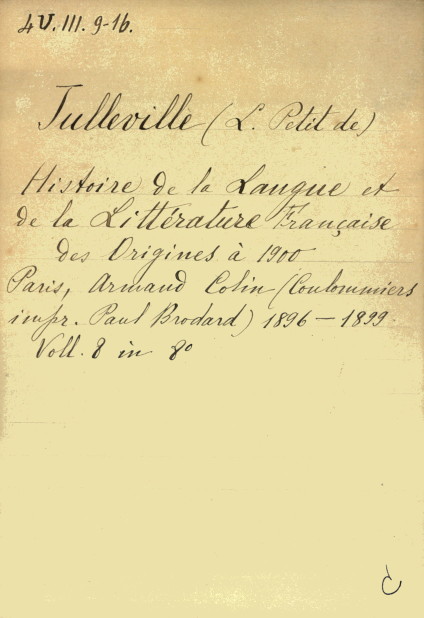 4 V. III. 9-16.
Julleville (L. Petit de)
Histoire de la Langue et
de la Littérature Française
des Origines à 1900
Paris, Armand Colin (Coulommiers
impr. Paul Brodard) 1896-1899.
Voll. 8 in 8º